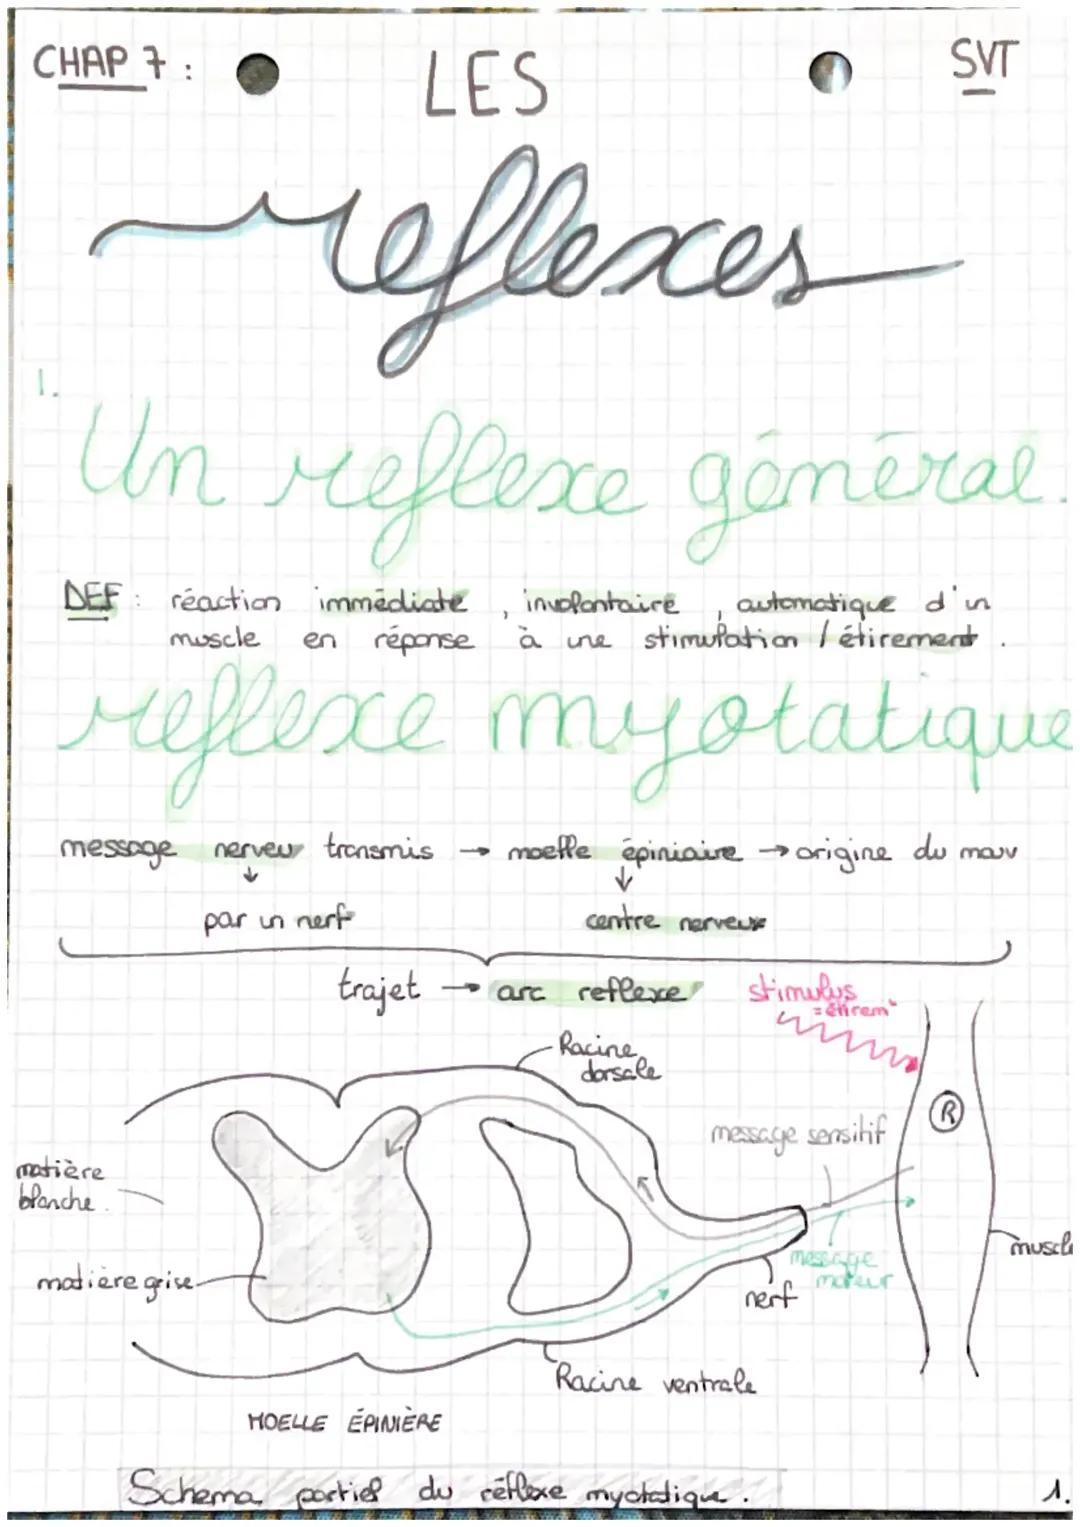 CHAP 7 :
LES
SVT
reflexes
1.
Un reflexe général.
DEF : réaction immédiate, involontaire, automatique d'un
muscle en réponse à une stimulation / étirement.
reflexe myotatique
message nerveu transmis → moelle épiniaire → origine du mouv
↓ ↓
par un nerf centre nerveux
trajet → arc reflexe
stimulus
= étiremt
Racine
dorsale
R
message sensitif
matière
blanche.
matière grise
message
moteur
nerf
muscle
Racine ventrale
MOELLE ÉPINIÈRE
Schema partiel du réflexe myotatique.
1.